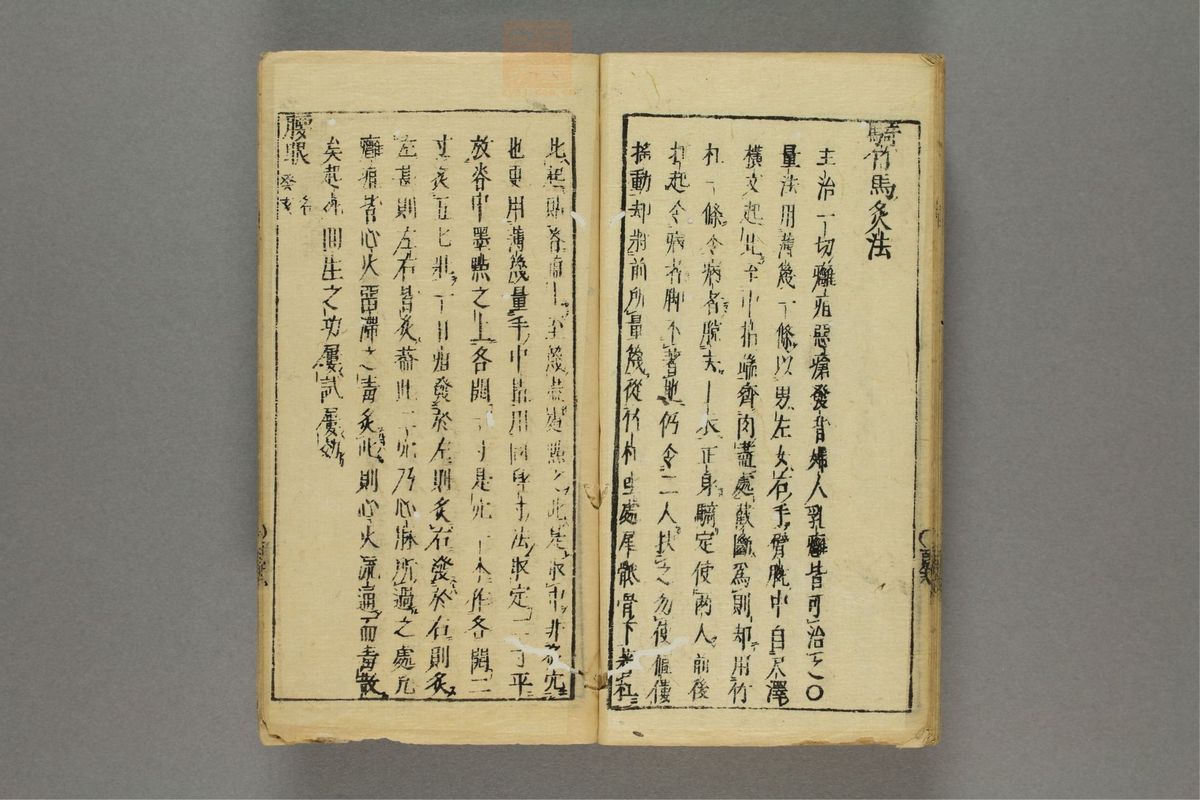 騎竹馬灸法
主治一切癰疽惡瘡發背婦人乳癰皆可治之〇
量法用薄篾一條以男左女右手臂腕中自尺澤
橫文起比至中指端齊肉盡處截斷為則却用竹
杠一條令病者脫去上衣正身騎定使兩人前後
扛起令病者脚不著地仍令二人扶之勿使傴僂
搖動却將前所量篾從竹杠坐處尾骶骨下著杠
比起貼脊直上至篾盡處點之此是取中非灸穴
也更用薄篾量手中指用同身寸法取定二寸平
放脊中墨點之上各開一寸是穴一本作各開二
寸灸五七壯一曰疽發於左則灸右發於右則灸
左甚則左右皆灸蓋此二穴乃心脉所過之處凡
癰疽皆心火留滯之毒灸此則心火流通而毒散
矣起死回生之功屢試屢効
腰眼